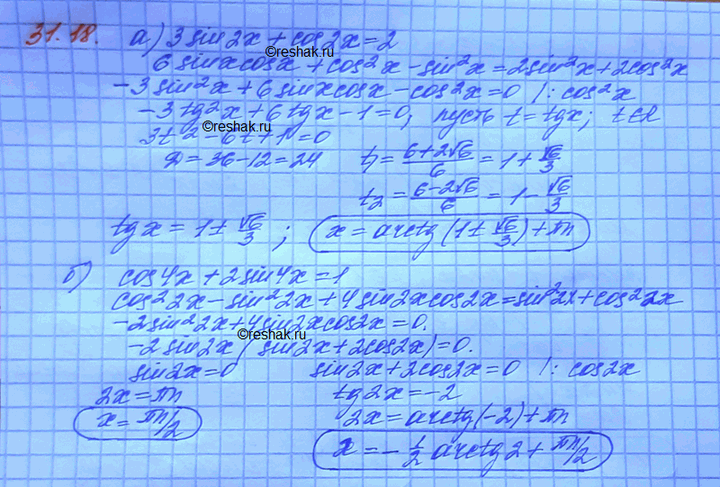 31.18. а) 3 sin2x + cos2x = 2
©reshak.ru
6 sinx cosx + cos²x - sin²x = 2sin²x + 2cos²x
-3 sin²x + 6 sinx cosx - cos²x = 0 /: cos²x
-3 tg²x + 6 tgx - 1 = 0, пусть t = tgx; t∈R
©reshak.ru
3t² - 6t + 1 = 0
D = 36 - 12 = 24 t₁ = (6+2√6)/6 = 1 + √6/3
t₂ = (6-2√6)/6 = 1 - √6/3
tgx = 1 ± √6/3 ; x = arctg(1 ± √6/3) + πn
б) cos4x + 2 sin4x = 1
cos²2x - sin²2x + 4 sin2x cos2x = sin²2x + cos²2x
-2 sin²2x + 4 sin2x cos2x = 0.
©reshak.ru
-2 sin2x ( sin2x + 2cos2x) = 0.
sin2x = 0 sin2x + 2cos2x = 0 /: cos2x
2x = πn tg2x = -2
x = πn/2 2x = arctg(-2) + πn
x = - 1/2 arctg2 + πn/2